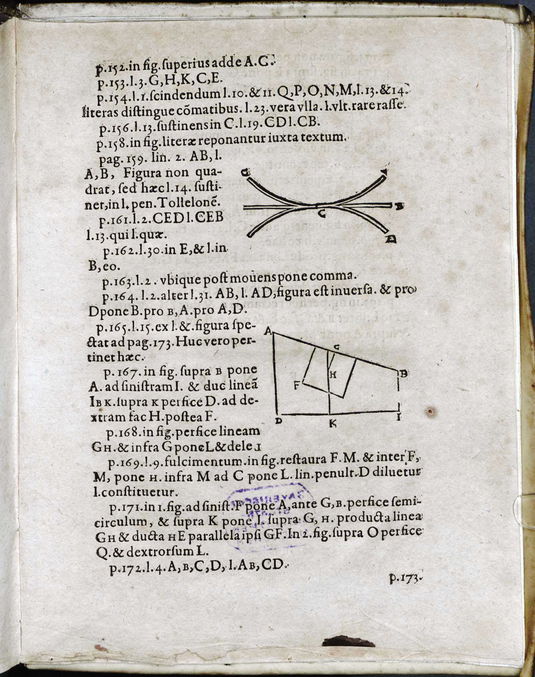 p.152.in fig.ſuperius adde A.C.
p.153.l.3.G,H,K,C,E.
p.154.l.1.ſcindendum l.10.&11.Q,P,O,N,M,l.13.&14.
literas diſtingue cõmatibus. l.23.vera vlla. l.vlt.rare raſſe.
p.156.l.13.ſuſtinens in C.l.19.CD l.CB.
p.158.in fig.literæ reponantur iuxta textum.
pag. 159. lin. 2. AB, l.
A, B, Figura non qua-
drat, ſed hæc l.14. ſuſti-
ner, in l. pen. Tollelonẽ.
p.161.l.2.CED l.CEB
l.13.qui l.quæ.
p.162.l.30.in E,& l.in
B,eo.
C
A
C
B
D
p.163.l.2. vbique poſt mouens pone comma.
p.164. l.2.alter l.31. AB, l. AD, figura eſt inuerſa. & pro
D pone B.pro B, A.pro A, D.
p.165.l.15.ex l.&.figura ſpe-
ctat ad pag.173. Huc vero per-
tinet hæc.
p. 167. in fig. ſupra B pone
A. ad ſiniſtram I. & duc lineã
IB K.ſupra K perfice D. ad de-
xtram fac H.poſtea F.
p.168.in fig.perfice lineam
GH.& infra G pone L & dele I
A
G
B
H
F
D
K
I
p.169.l.9.fulcimentum.in fig.reſtaura F.M. & inter F,
M, pone H. infra M ad C pone L. lin.penult.D diluetur
l.conſtituetur.
p.171.in 1.fig.ad ſiniſt.F pone A,ante G,B.perfice ſemi-
circulum, & ſupra K pone I. ſupra G, H. producta linea
GH & ducta HE parallela ipſi GF.In 2.fig.ſupra O perfice
Q. & dextrorſum L.
p.172.l.4.A,B,C,D, l.AB,CD.
p.173.